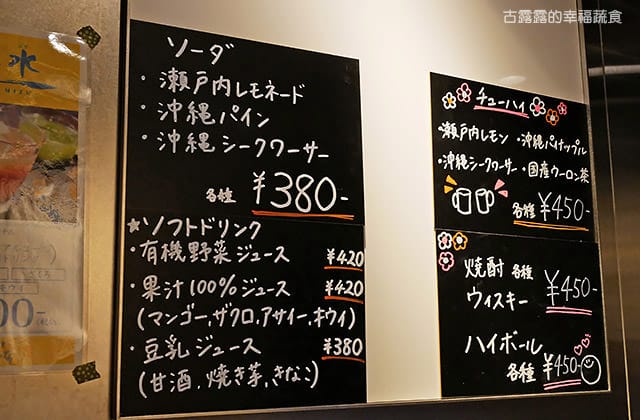 古露露的幸福蔬食
水
MIZU
ソーダ
・瀬戸内レモネード
・沖縄パイン
・沖縄シークワーサー
各種 ¥380-
★ソフトドリンク
・有機野菜ジュース ¥420
・果汁100%ジュース ¥420
(マンゴー,ザクロ,アサイー,キウイ)
・豆乳ジュース ¥380
(甘酒,焼き芋,きなこ)
チューハイ
・瀬戸内レモン・沖縄パイナップル
・沖縄シークワーサー・国産ウーロン茶
各種 ¥450-
焼酎 各種 ¥450-
ウィスキー
ハイボール
各種 ¥450-